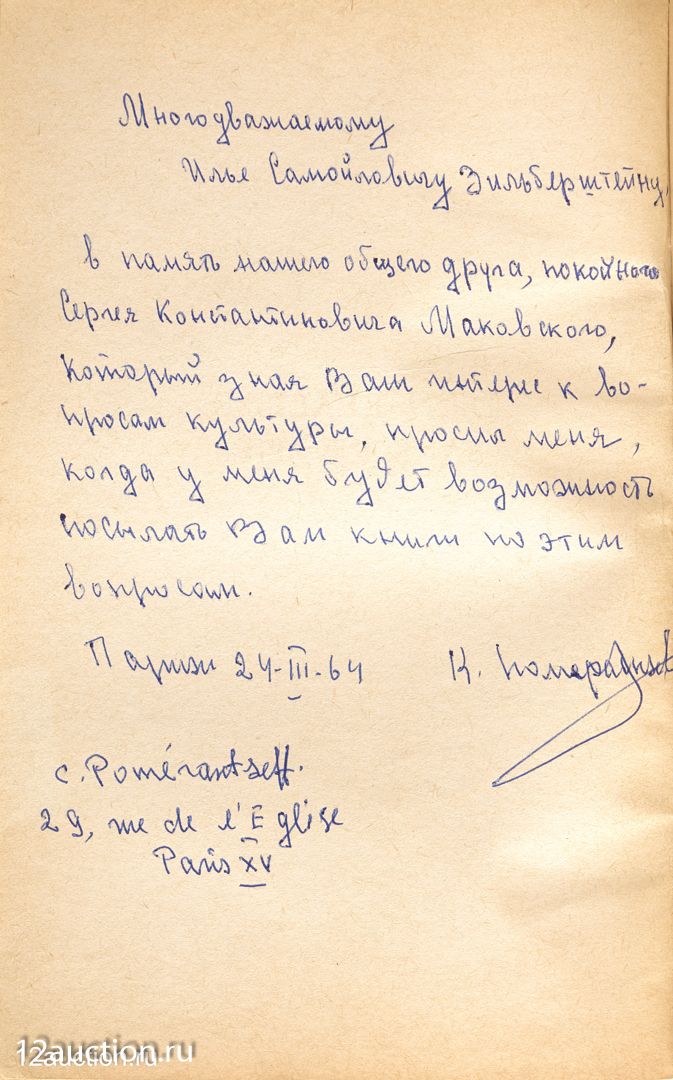 Многоуважаемому
Илье Самойловичу Зильберштейну,
в память нашего общего друга, покойного
Сергея Константиновича Маковского,
который зная Ваш интерес к во-
просам культуры, просил меня,
когда у меня будет возможность
посылать Вам книги по этим
вопросам.
Париж 24-III-64 К. Померанцев
C. Pomérantseff.
29, rue de l'Eglise
Paris XV
12auction.ru
12auction.ru